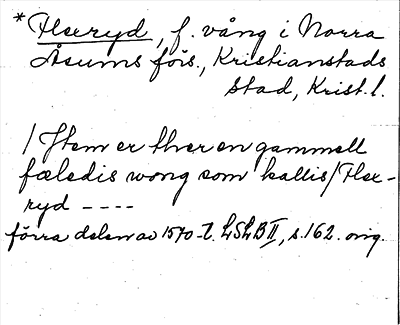 *Flxeryd, f. vång i Norra
Åsums förs., Kristianstads
stad, Krist. l.
/ Jtem er ther en gammell
fæledis wong som kallis / Flxe-
ryd ----
förra delen av 1570-t. LSLB II, s. 162. orig.